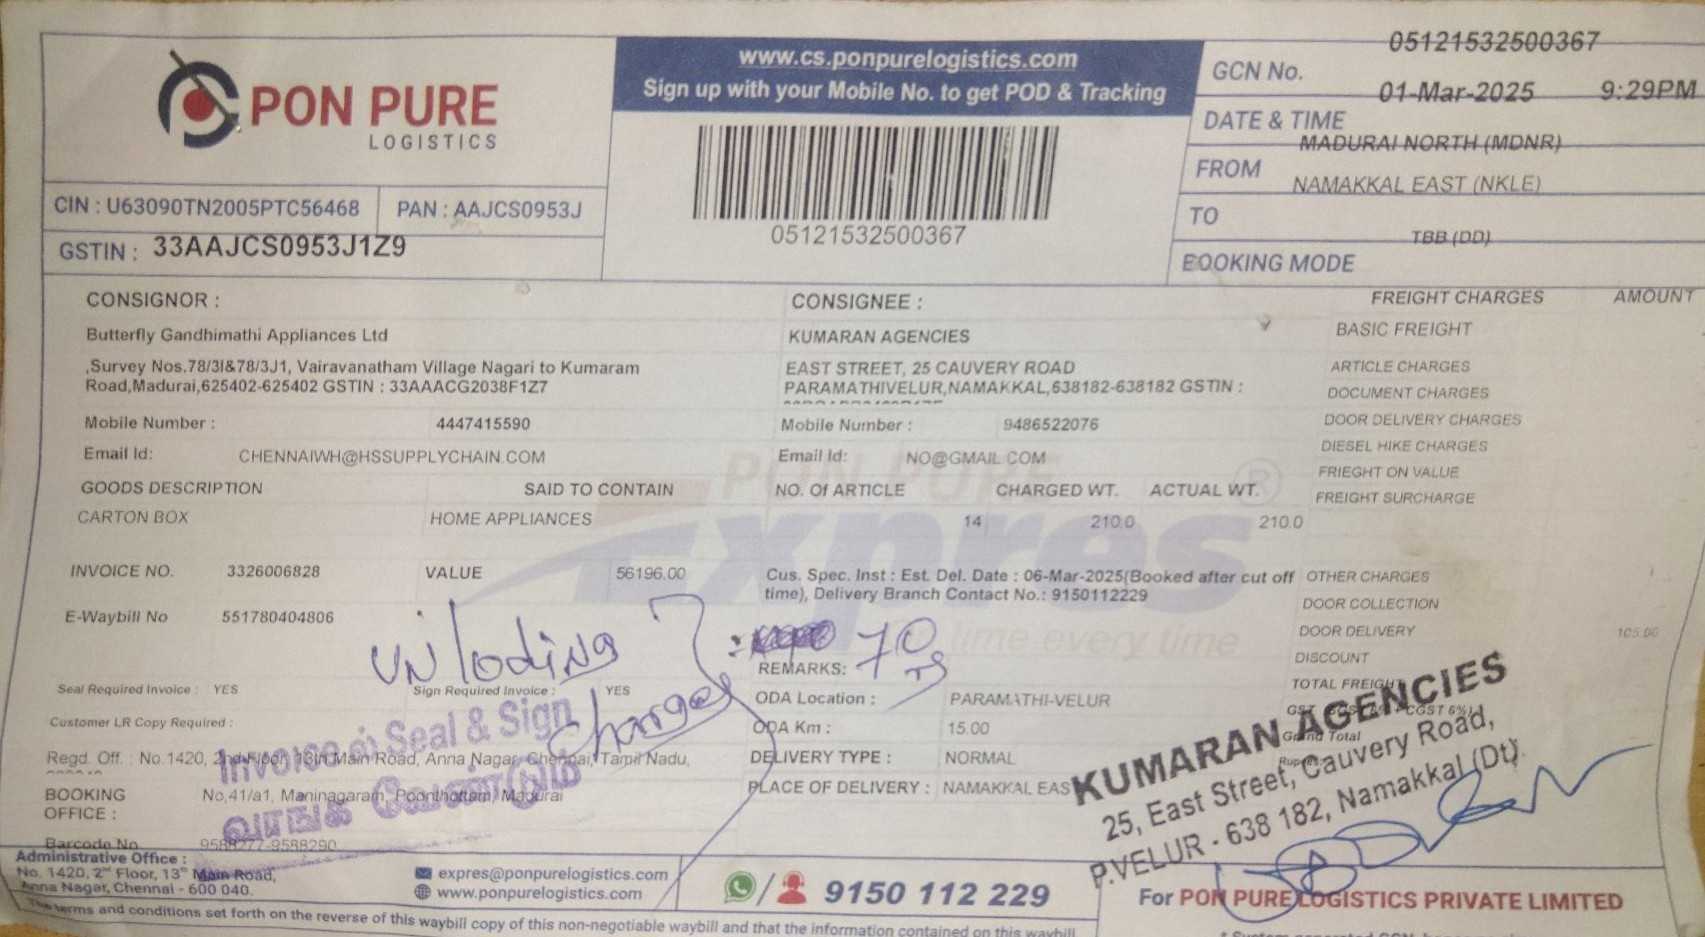 PON PURE
LOGISTICS
CIN : U63090TN2005PTC56468 PAN : AAJCS0953J
GSTIN : 33AAJCS0953J1Z9
www.cs.ponpurelogistics.com
Sign up with your Mobile No. to get POD & Tracking
05121532500367
GCN No. 05121532500367
DATE & TIME 01-Mar-2025 9:29PM
FROM MADURAI NORTH (MDNR)
TO NAMAKKAL EAST (NKLE)
BOOKING MODE TBB (DD)
CONSIGNOR :
Butterfly Gandhimathi Appliances Ltd
,Survey Nos.78/3I&78/3J1, Vairavanatham Village Nagari to Kumaram
Road,Madurai,625402-625402 GSTIN : 33AAACG2038F1Z7
Mobile Number : 4447415590
Email Id: CHENNAIWH@HSSUPPLYCHAIN.COM
CONSIGNEE :
KUMARAN AGENCIES
EAST STREET, 25 CAUVERY ROAD
PARAMATHIVELUR,NAMAKKAL,638182-638182 GSTIN :
Mobile Number : 9486522076
Email Id: NO@GMAIL.COM
GOODS DESCRIPTION SAID TO CONTAIN NO. Of ARTICLE CHARGED WT. ACTUAL WT.
CARTON BOX HOME APPLIANCES 14 210.0 210.0
PON PURE
Expres
on time every time
INVOICE NO. 3326006828 VALUE 56196.00
E-Waybill No 551780404806
Cus. Spec. Inst : Est. Del. Date : 06-Mar-2025(Booked after cut off
time), Delivery Branch Contact No.: 9150112229
FREIGHT CHARGES AMOUNT
BASIC FREIGHT
ARTICLE CHARGES
DOCUMENT CHARGES
DOOR DELIVERY CHARGES
DIESEL HIKE CHARGES
FRIEGHT ON VALUE
FREIGHT SURCHARGE
OTHER CHARGES
DOOR COLLECTION
DOOR DELIVERY 105.00
DISCOUNT
TOTAL FREIGHT
Grand Total
unloding
charges
70
REMARKS:
Seal Required Invoice : YES Sign Required Invoice : YES
Customer LR Copy Required :
Invoice ல் Seal & Sign
வாங்க வேண்டும்
Regd. Off. : No.1420, 2nd Floor, 13th Main Road, Anna Nagar, Chennai, Tamil Nadu,
BOOKING OFFICE : No,41/a1, Maninagaram, Poonthottam, Madurai
Barcode No 9588277-9588290
ODA Location : PARAMATHI-VELUR
ODA Km : 15.00
DELIVERY TYPE : NORMAL
PLACE OF DELIVERY : NAMAKKAL EAS
KUMARAN AGENCIES
25, East Street, Cauvery Road,
P.VELUR - 638 182, Namakkal (Dt).
Administrative Office :
No. 1420, 2nd Floor, 13th Main Road,
Anna Nagar, Chennai - 600 040.
expres@ponpurelogistics.com
www.ponpurelogistics.com
9150 112 229
For PON PURE LOGISTICS PRIVATE LIMITED
The terms and conditions set forth on the reverse of this waybill copy of this non-negotiable waybill and that the information contained on this waybill